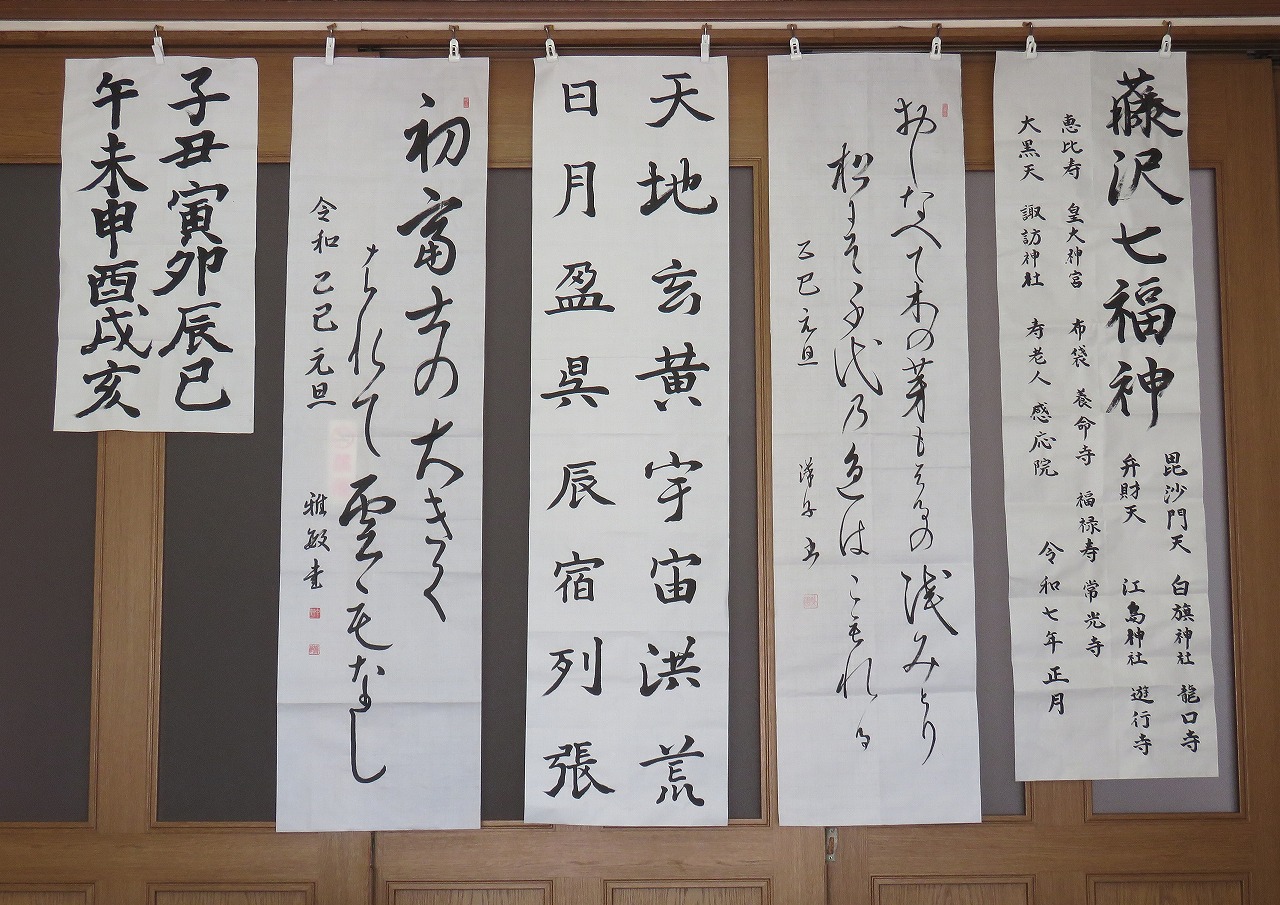 藤沢七福神
毘沙門天 白旗神社 龍口寺
弁財天 江島神社 遊行寺
恵比寿 皇大神宮 布袋 養命寺 福禄寿 常光寺
大黒天 諏訪神社 寿老人 感応院
令和七年正月
おしなへて木の芽もはるの浅みとり
松にそ千代乃色はこもれる
乙巳元旦 洋子書
天地玄黄宇宙洪荒
日月盈昃辰宿列張
初富士の大きく
はれて雲もなし
令和乙巳元旦 雅敏書
子丑寅卯辰巳
午未申酉戌亥